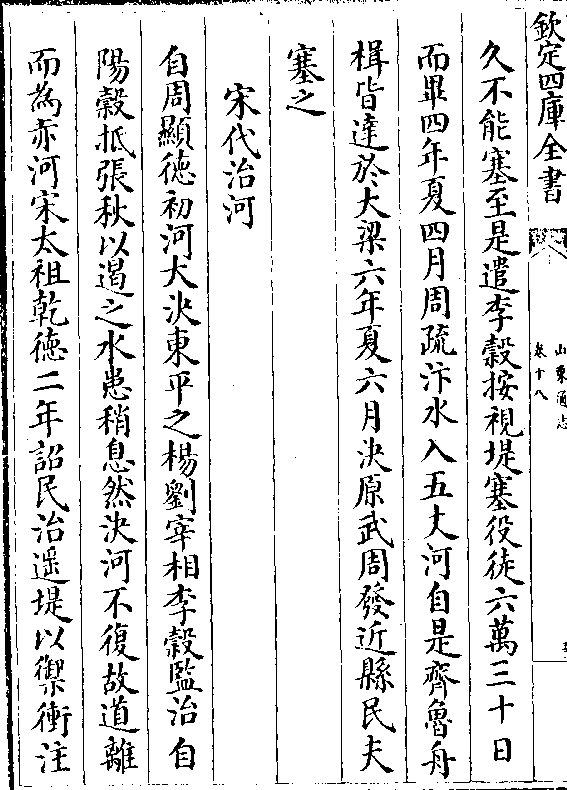 欽定四庫全書
山東通志
卷十八
久不能塞至是遣李穀按視堤塞役徒六萬三十日
而畢四年夏四月周疏汴水入五丈河自是齊魯舟
楫皆達於大梁六年夏六月決原武周發近縣民夫
塞之
宋代治河
自周顯德初河大決東平之楊劉宰相李穀監治自
陽穀抵張秋以遏之水患稍息然決河不復故道離
而為赤河宋太祖乾德二年詔民治遥堤以禦衝注